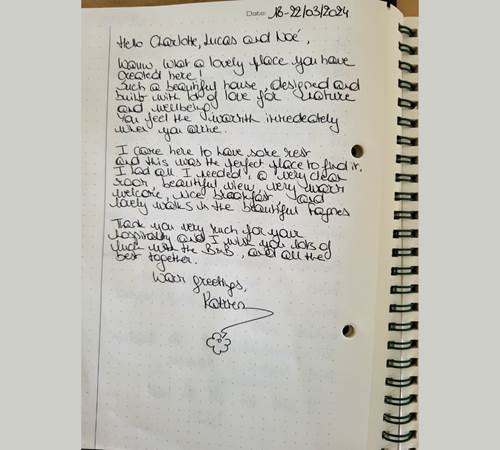 Date: 18-22/03/2024
Hello Charlotte, Lucas and Noé,
Wauw, what a lovely place you have
created here!
Such a beautiful house, designed and
built with lots of love for nature
and wellbeing.
You feel the warmth immedeately
when you
I came here to have some rest
and this was the perfect place to find it.
I had all I needed, a very clean
room, beautiful view, very warm
welcome, nice breakfast, and
lovely walks in the beautiful Fagnes
Thank you very much for your
hospitality and I wish you lots of
luck with the BnB, and all the
best together.
Warm greetings,
Katrien